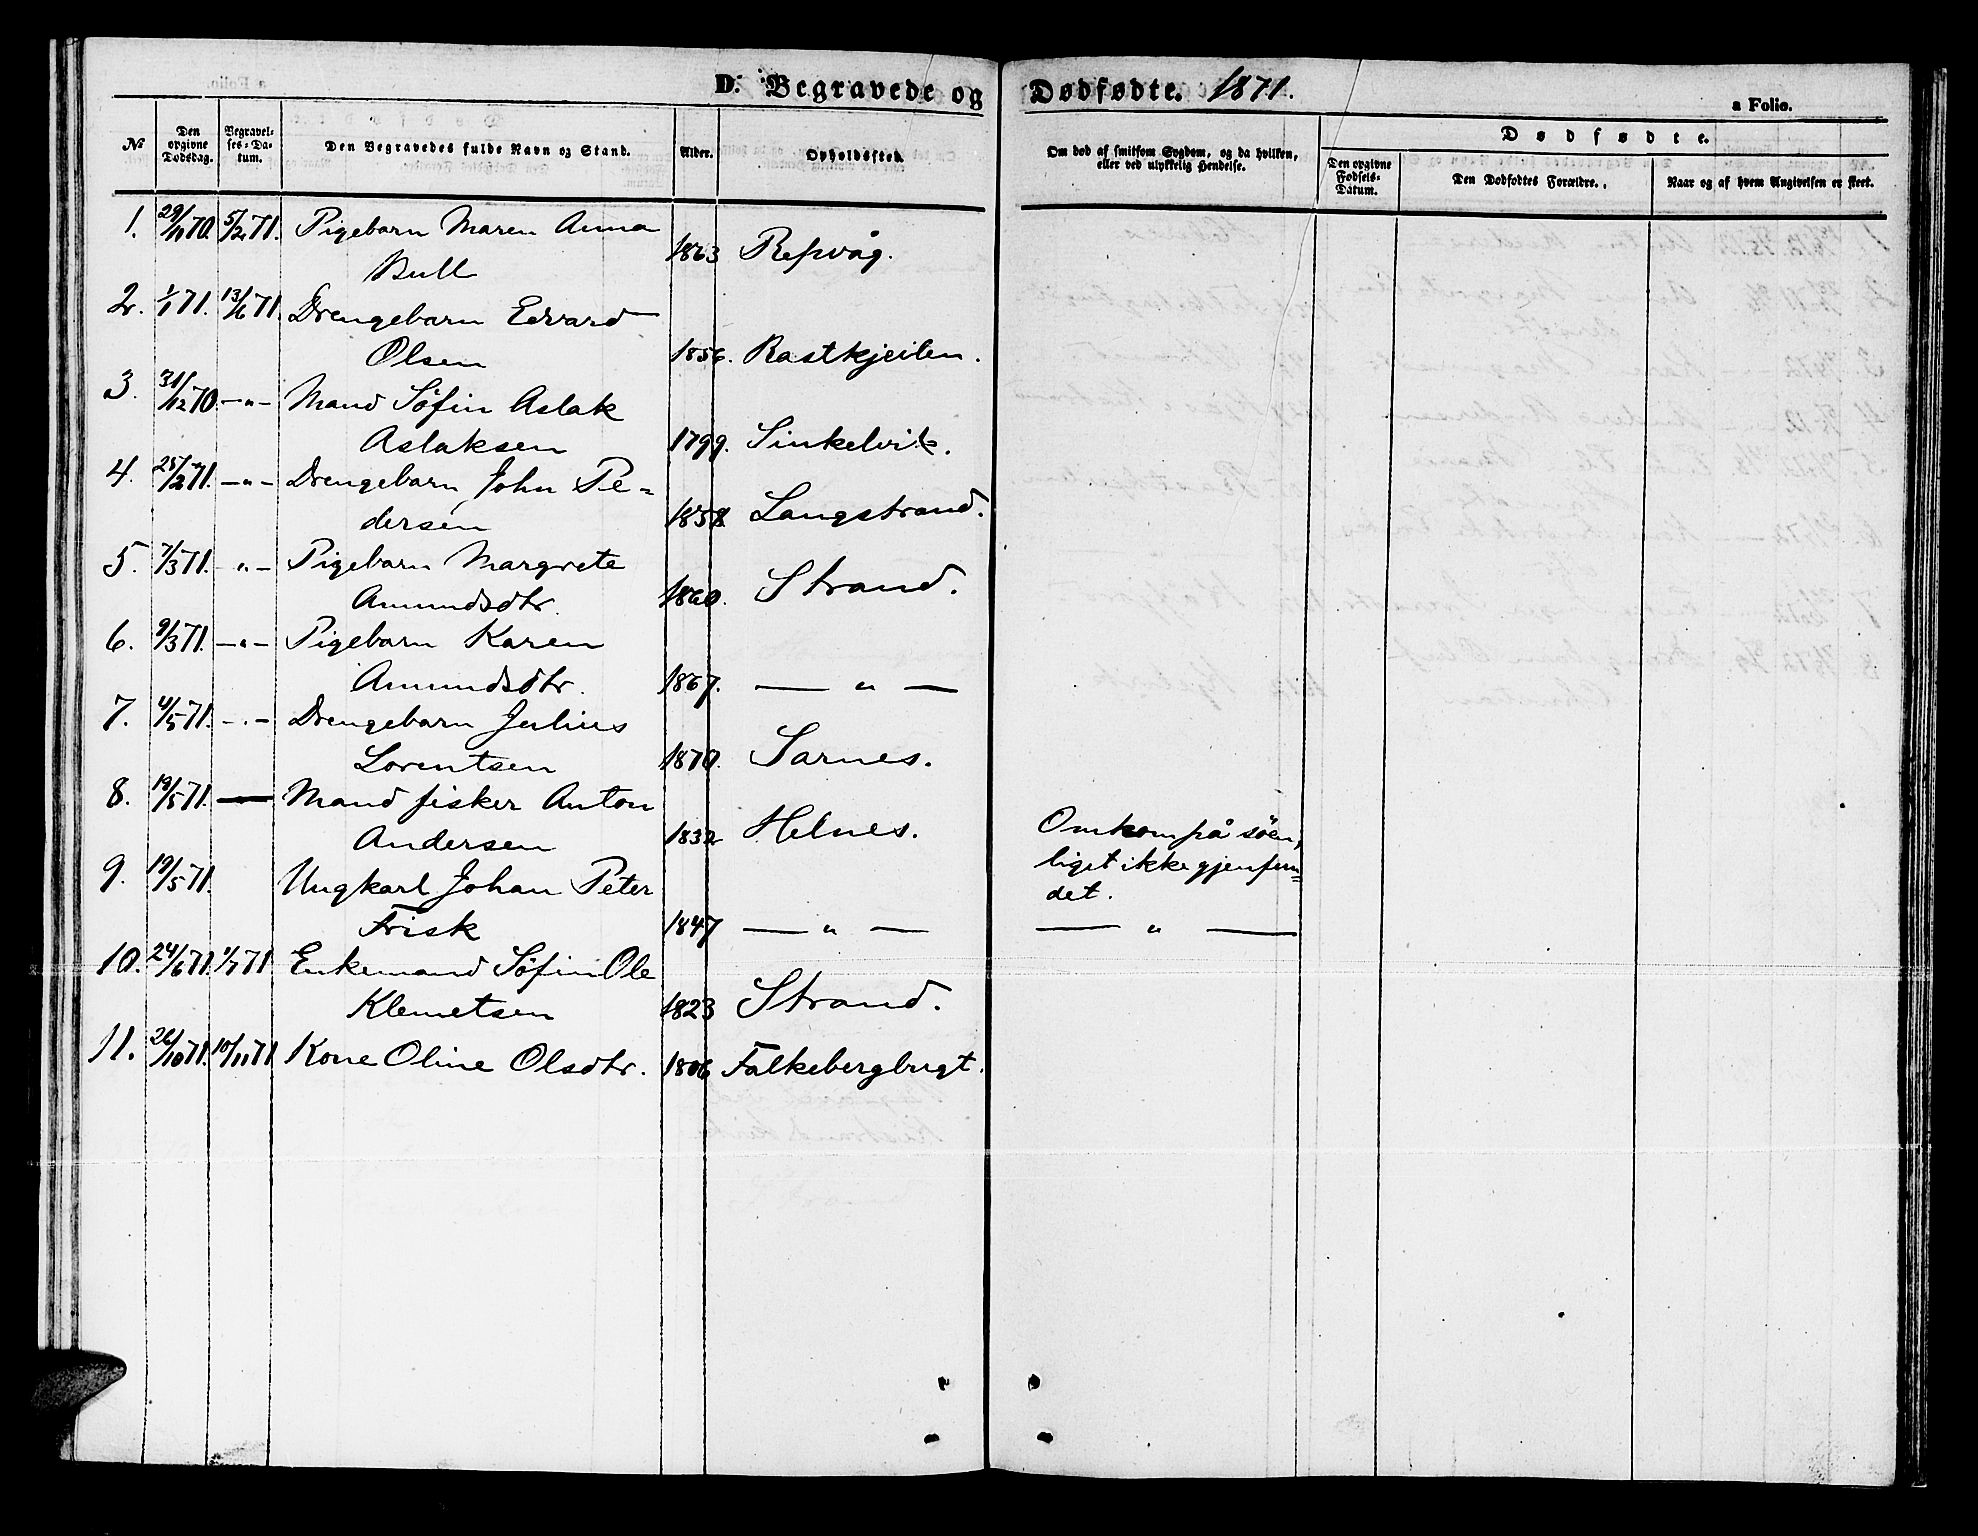 D. Begravede og Dødfødte. 1871.
a Folio.
№ Den opgivne Dødsdag. Begravelses-Datum. Den Begravedes fulde Navn og Stand. Alder. Opholdssted. Om død af smitsom Sygdom, og da hvilken, eller ved ulykkelig Hendelse.
Dødfødte.
Den opgivne Fødsels-Datum. Den Dødfødtes Forældre. Naar og af hvem Angivelsen er skeet.
1. 29/11 70. 5/2 71. Pigebarn Maren Anna
Bull 1863 Repvåg.
2. 1/1 71. 13/6 71. Drengebarn Edvard
Olsen 1856. Kastkjeilen.
3. 31/12 70. —"— Mand Söfin Aslak
Aslaksen 1799. Sinkelvik.
4. 25/2 71. —"— Drengebarn John Pe=
dersen 1858 Langstrand.
5. 7/3 71. —"— Pigebarn Margrete
Amundsdtr. 1860. Strand.
6. 9/3 71. —"— Pigebarn Karen
Amundsdtr. 1867. — " —
7. 4/5 71. —"— Drengebarn Julius
Lorentsen 1870. Sarnes.
8. 19/5 71. — Mand fisker Anton
Andersen 1832 Helnes. Omkom på söen,
liget ikke gjenfun=
det.
9. 19/5 71. Ungkarl Johan Peter
Frisk 1847 — " — — " —
10. 24/6 71. 9/7 71 Enkemand Söfin Ole
Klemetsen 1823 Strand.
11. 26/10 71. 10/11 71 Kone Oline Olsdtr. 1806 Falkebergbugt.